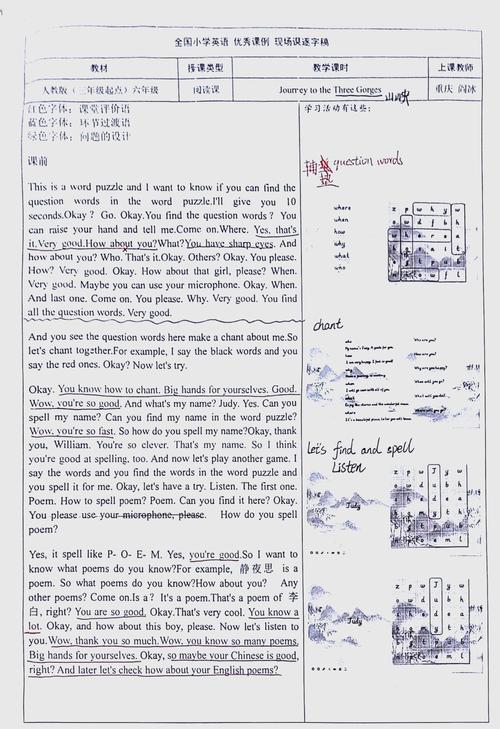 全国小学英语 优秀课例 现场课逐字稿
教材 授课类型 教学课时 上课教师
人教版（三年级起点）六年级 阅读课 Journey to the Three Gorges 山山峡 重庆 阎冰
红色字体：课堂评价语
蓝色字体：环节过渡语
绿色字体：问题的设计
课前
This is a word puzzle and I want to know if you can find the
question words in the word puzzle.I'll give you 10
seconds.Okay？ Go. Okay.You find the question words？ You
can raise your hand and tell me.Come on.Where. Yes, that's
it.Very good.How about you?What?You have sharp eyes. And
how about you? Who. That's it.Okay. Others? Okay. You please.
How? Very good. Okay. How about that girl, please? When.
Very good. Maybe you can use your microphone. Okay. When.
And last one. Come on. You please. Why. Very good. You find
all the question words. Very good.
And you see the question words here make a chant about me.So
let's chant together.For example, I say the black words and you
say the red ones. Okay? Now let's try.
Okay. You know how to chant. Big hands for yourselves. Good.
Wow, you're so good. And what's my name? Judy. Yes. Can you
spell my name? Can you find my name in the word puzzle?
Wow, you're so fast. So how do you spell my name?Okay, thank
you, William. You're so clever. That's my name. So I think
you're good at spelling, too. And now let's play another game. I
say the words and you find the words in the word puzzle and
you spell it for me. Okay, let's have a try. Listen. The first one.
Poem. How to spell poem? Poem. Can you find it here? Okay.
You please use your microphone, please. How do you spell
poem?
Yes, it spell like P- O- E- M. Yes, you're good.So I want to
know what poems do you know?For example, 静夜思 is a
poem. So what poems do you know?How about you? Any
other poems? Come on.Is a？ It's a poem.That's a poem of 李
白, right? You are so good, Okay.That's very cool. You know a
lot. Okay, and how about this boy, please. Now let's listen to
you.Wow, thank you so much.Wow, you know so many poems.
Big hands for yourselves. Okay, so maybe your Chinese is good,
right? And later let's check how about your English poems?
学习活动有这些：
question words
where
when
how
why
what
who
chant
let's find and spell
Listen
Judy
Judy